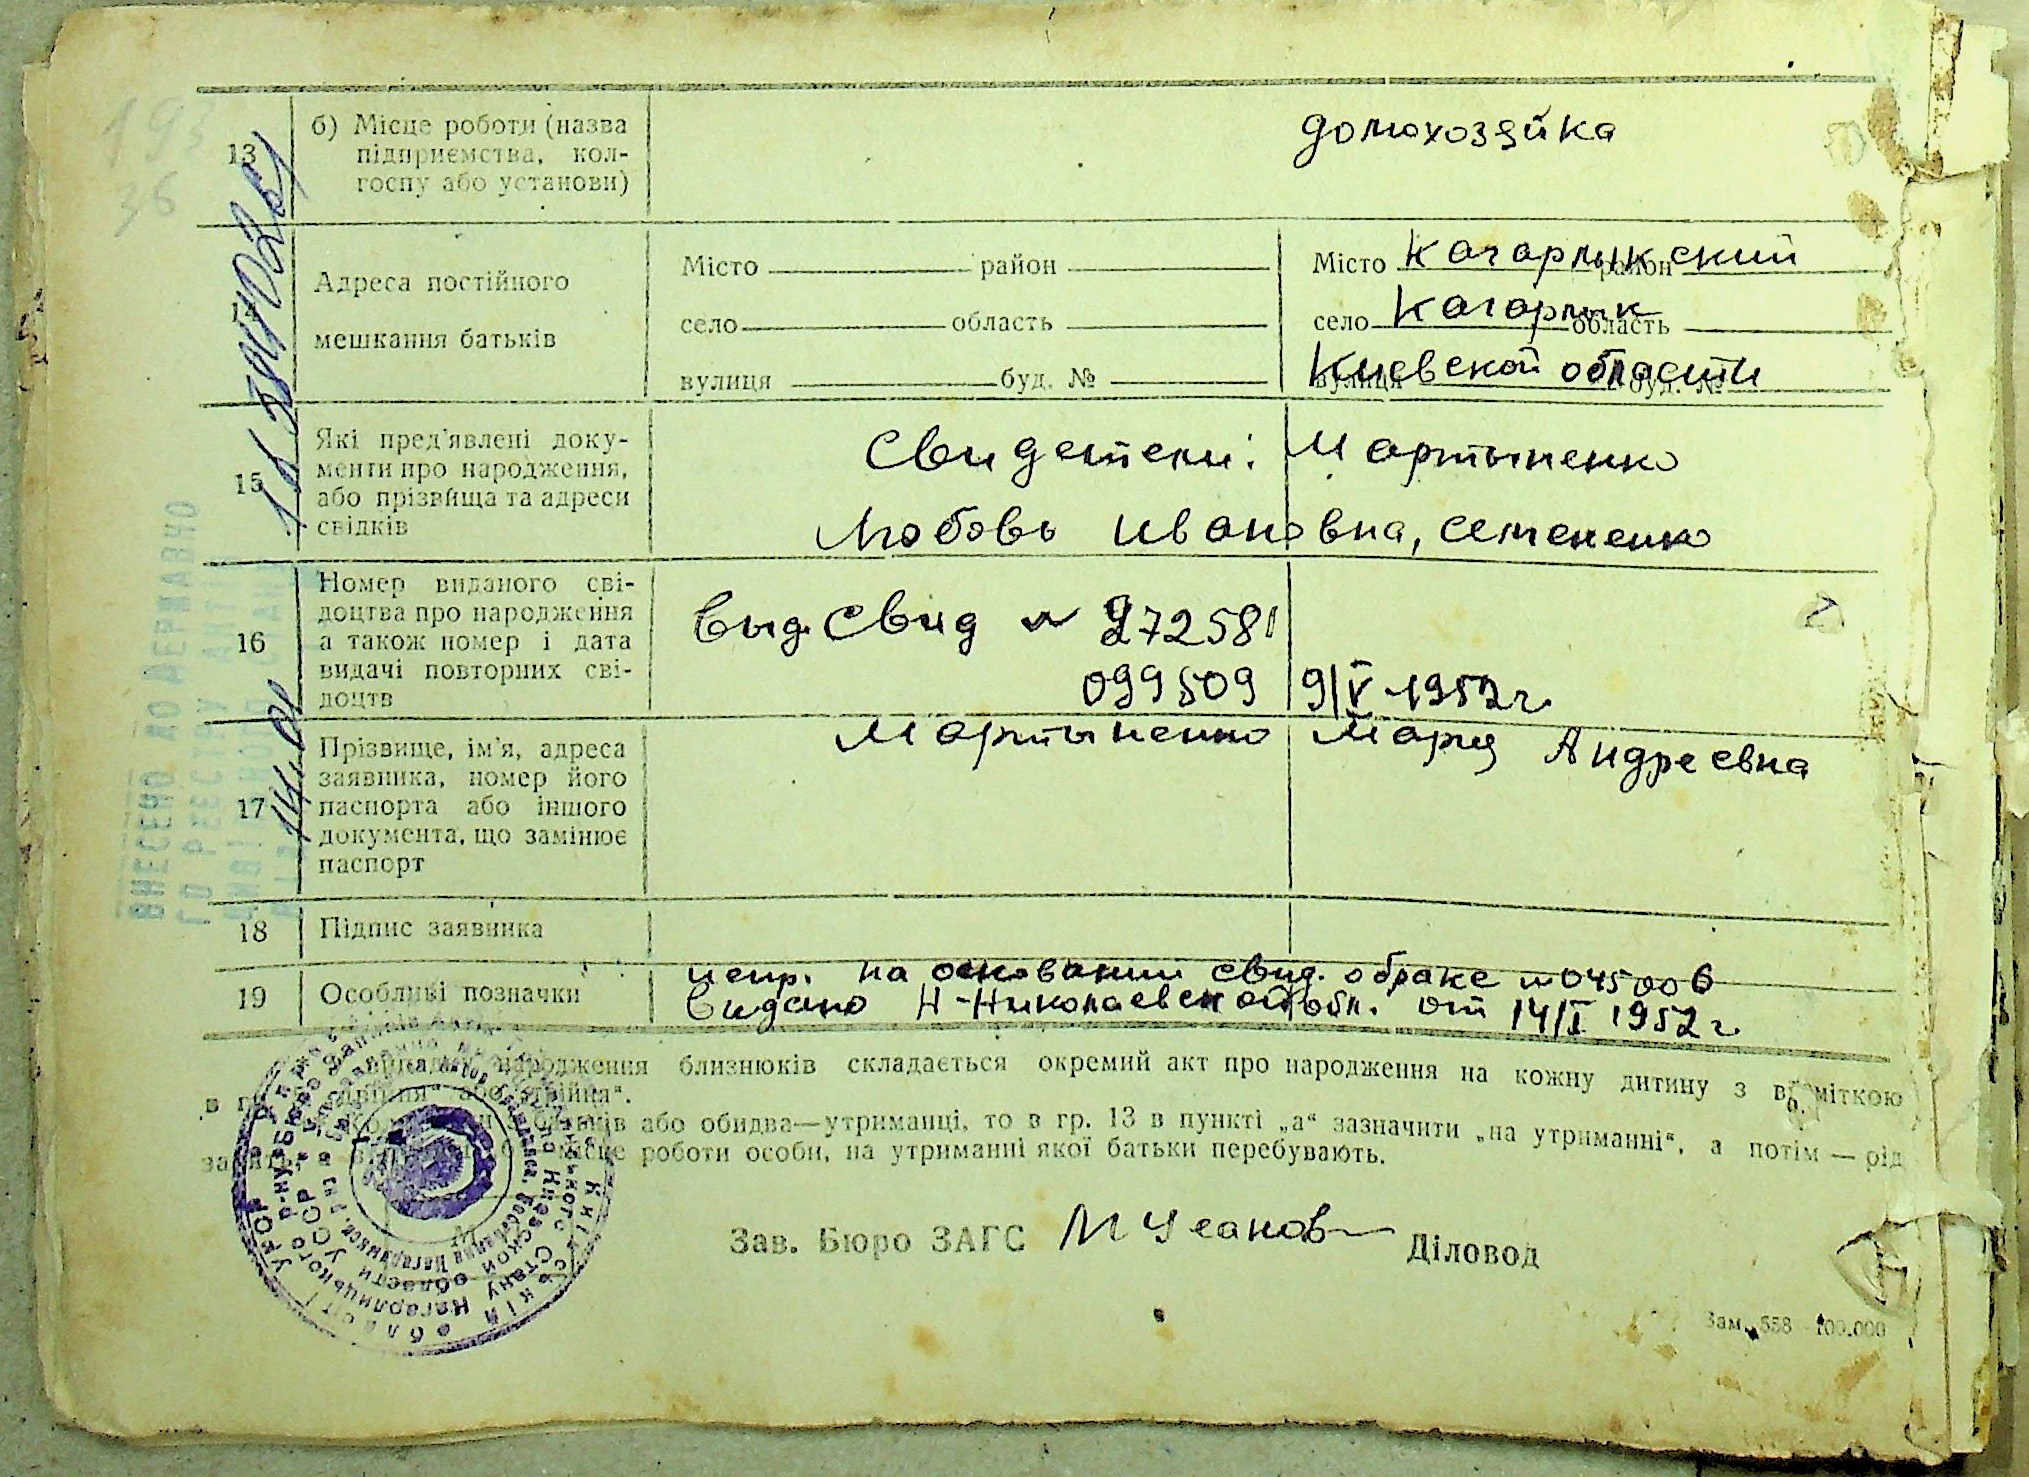 13
б) Місце роботи (назва
підприємства, кол-
госпу або установи)
домохозяйка
14
Адреса постійного
мешкання батьків
Місто район
село область
вулиця буд. №
Місто Кагарлыкский район
село Кагарлык область
вулиця Киевской области буд. №
15
Які пред'явлені доку-
менти про народження,
або прізвища та адреси
свідків
Свидетели: Мартыненко
Любовь Ивановна, Семененко
16
Номер виданого сві-
доцтва про народження
а також номер і дата
видачі повторних сві-
доцтв
Выд. Свид N 272581
099509 9/V-1952г.
17
Прізвище, ім'я, адреса
заявника, номер його
паспорта або іншого
документа, що замінює
паспорт
Мартыненко Мария Андреевна
18
Підпис заявника
19
Особливі позначки
испр. на основании свид. о браке N 045006
видано Н-Николаевской обл. от 14/I 1952г
народження близнюків складається окремий акт про народження на кожну дитину з відміткою
в гр. „двійня“ або „трійня“.
або обидва—утриманці, то в гр. 13 в пункті „а“ зазначити „на утриманні“, а потім — рід
місце роботи особи, на утриманні якої батьки перебувають.
Зав. Бюро ЗАГС Діловод
Зам. 558 100.000